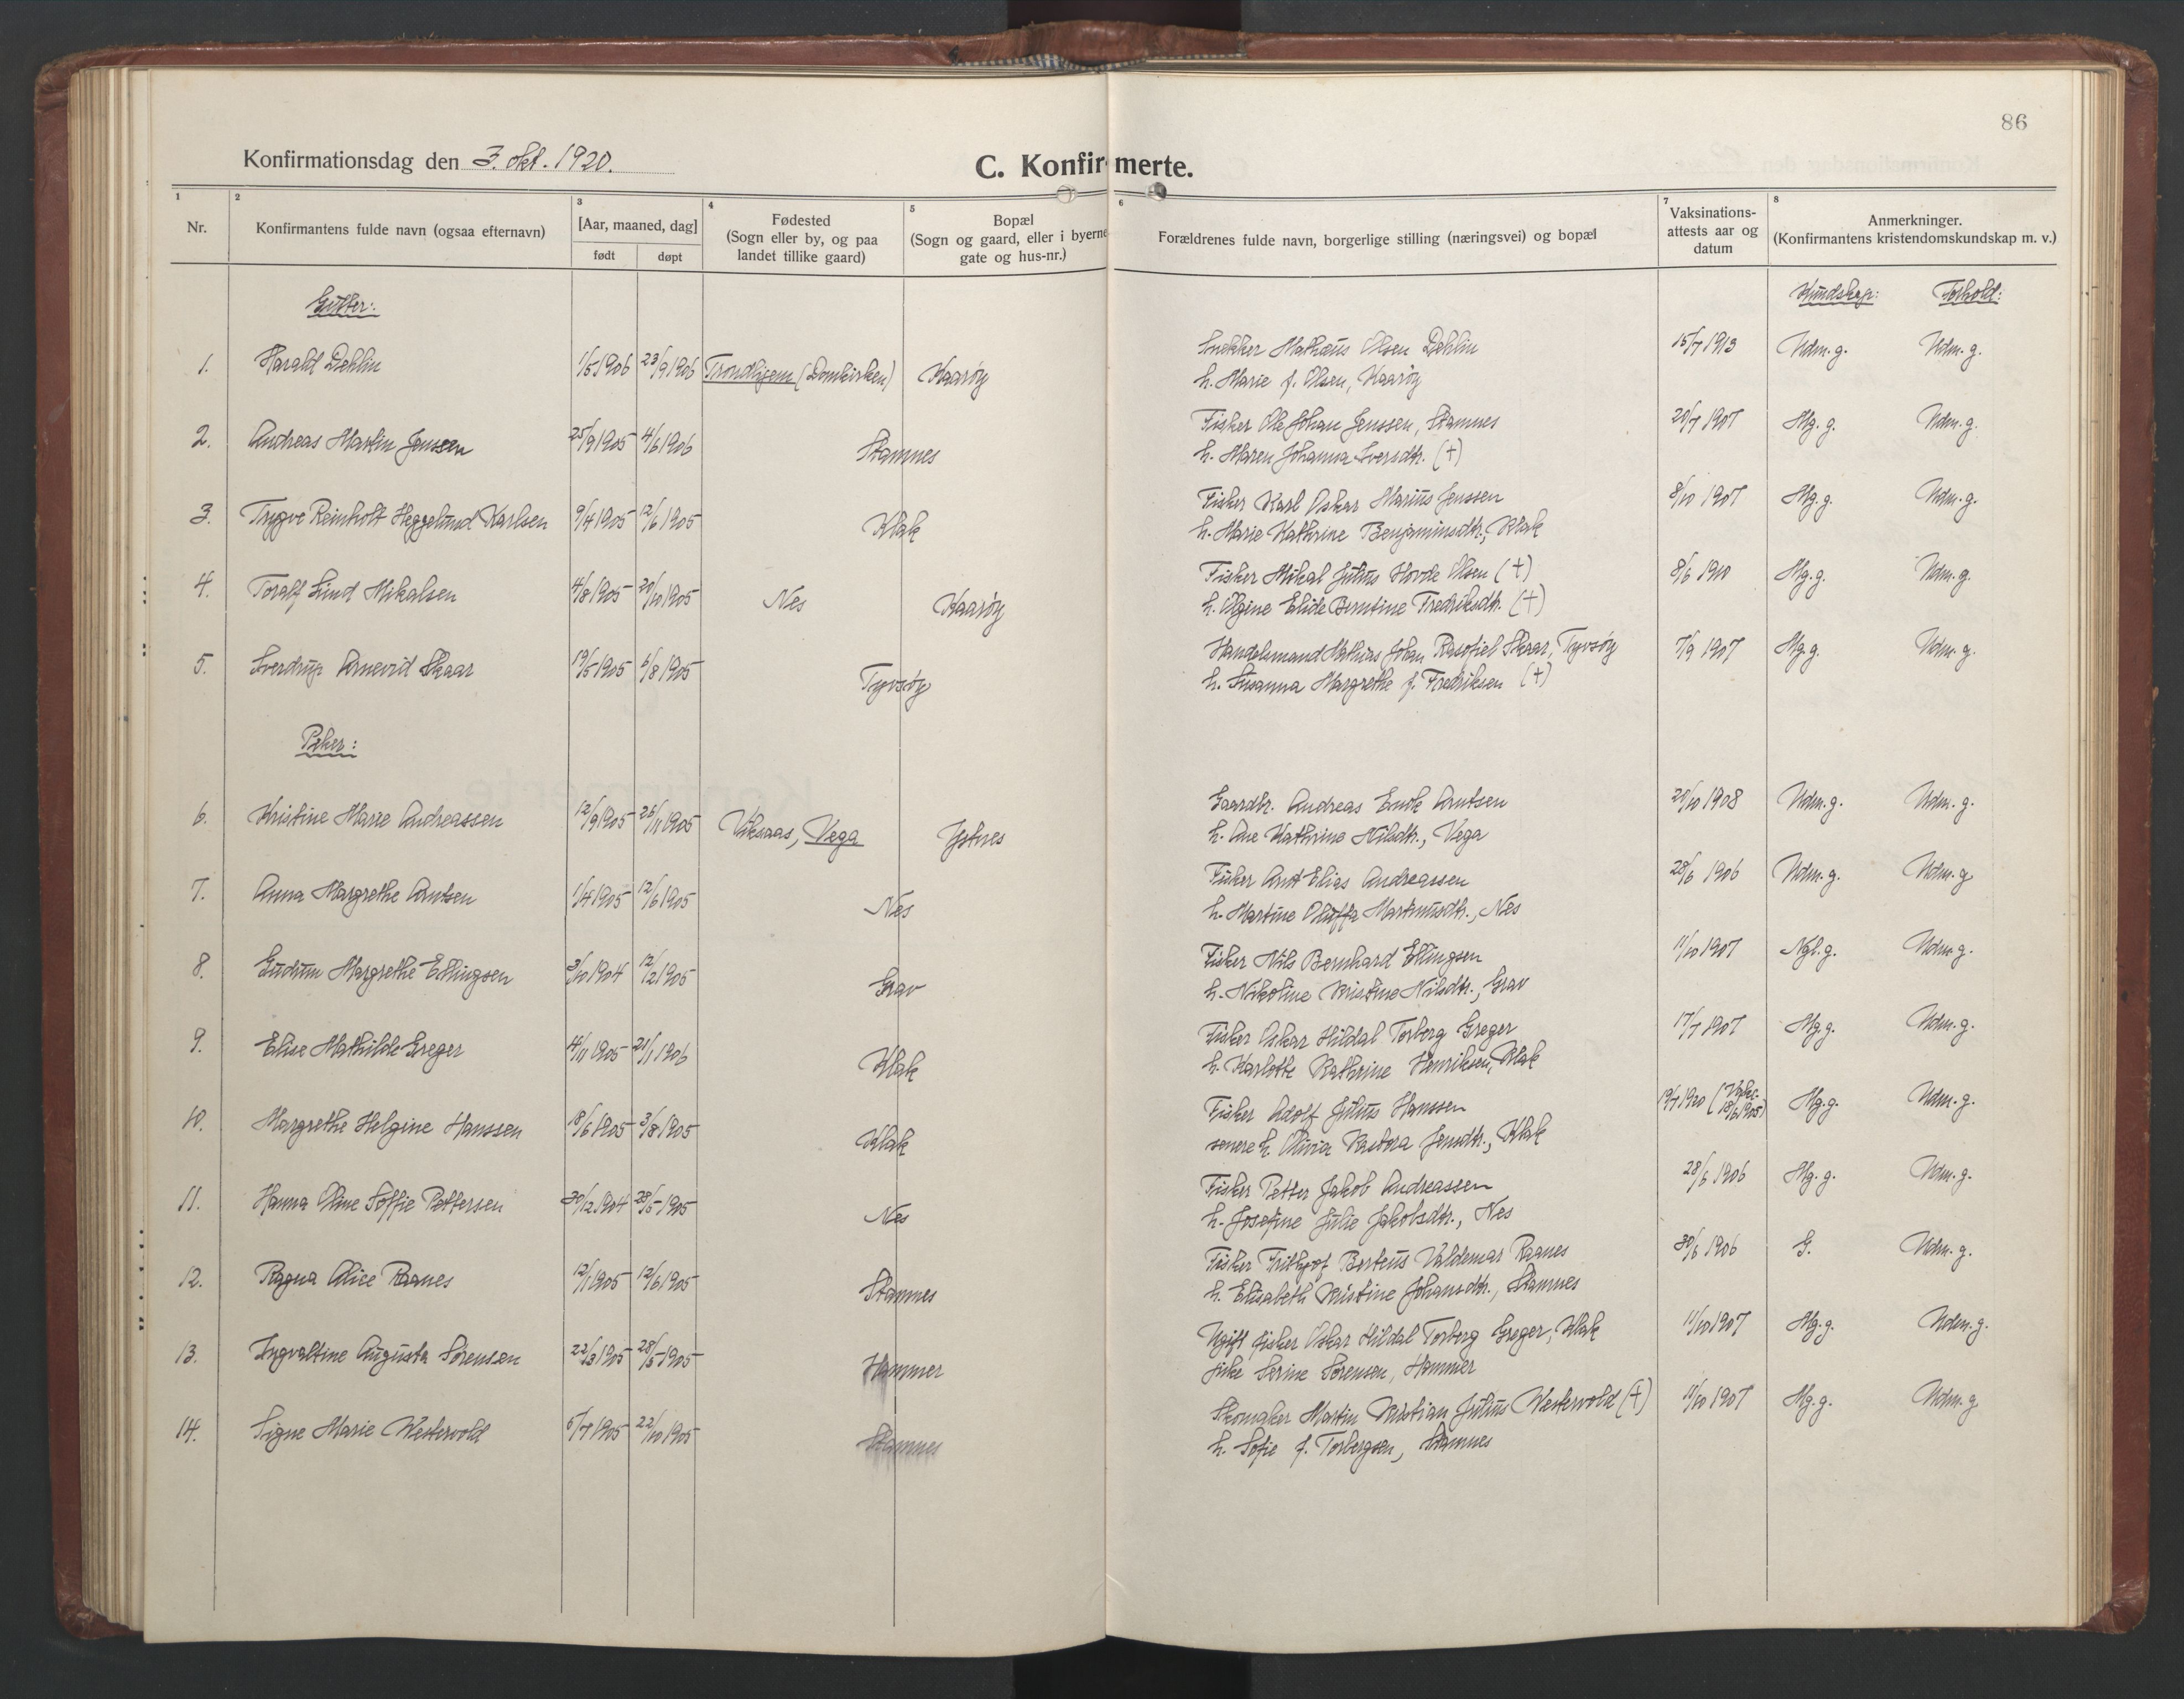 86
Konfirmationsdag den 3. okt. 1920.
C. Konfirmerte.
1 2 3 4 5 6 7 8
Nr.
Konfirmantens fulde navn (ogsaa efternavn)
[Aar, maaned, dag]
født døpt
Fødested
(Sogn eller by, og paa
landet tillike gaard)
Bopæl
(Sogn og gaard, eller i byerne
gate og hus-nr.)
Forældrenes fulde navn, borgerlige stilling (næringsvei) og bopæl
Vaksinations-
attests aar og
datum
Anmerkninger.
(Konfirmantens kristendomskundskap m. v.)
Gutter: Kundskap: Forhold:
1. Harald Dehlin 1/5 1906 23/9 1906 Trondhjem (Domkirken) Kaarøy Snekker Mathæus Olsen Dehlin 15/7 1913 Udm. g. Udm. g.
h. Marie f. Olsen, Kaarøy
2. Andreas Martin Jenssen 25/9 1905 4/6 1906 Stamnes Fisker Ole Johan Jenssen, Stamnes 20/7 1907 Mg. g. Udm. g.
h. Maren Johanna Iversdtr. (+)
3. Trygve Reinholt Heggelund Karlsen 9/4 1905 12/6 1905 Klak Fisker Karl Oskar Marius Jenssen 8/10 1907 Mg. g. Udm. g.
h. Marie Kathrine Benjaminsdtr., Klak
4. Toralf Lind Mikalsen 4/8 1905 20/10 1905 Nes Kaarøy Fisker Mikal Julius Hovde Olsen (+) 8/6 1910 Mg. g. Udm. g.
h. Olgine Elide Berntine Fredriksdtr. (+)
5. Sverdrup Arnevid Skaar 19/5 1905 6/8 1905 Tyvsøy Handelsmand Mathias Johan Skaar, Tyvsøy 7/9 1907 Mg. g. Udm. g.
h. Susanna Margrethe f. Fredriksen (+)
Piker:
6. Kristine Marie Andreassen 12/9 1905 26/11 1905 Viksaas, Vega Ystnes Gaardbr. Andreas Arntsen 20/10 1908 Udm. g. Udm. g.
h. Ane Kathrine Nilsdtr., Vega
7. Anna Margrethe Arntsen 1/4 1905 12/6 1905 Nes Fisker Arnt Elias Andreassen 28/6 1906 Udm. g. Udm. g.
h. Martine Oluffa Martinusdtr., Nes
8. Gudrun Margrethe Ellingsen 3/10 1904 12/2 1905 Grav Fisker Nils Bernhard Ellingsen 11/10 1907 Ngl. g. Udm. g.
h. Nikoline Kristine Nilsdtr., Grav
9. Elise Mathilde Greger 4/11 1905 21/1 1906 Klak Fisker Oskar Hildal Torberg Greger 17/7 1907 Mg. g. Udm. g.
h. Karlotte Kathrine Henriksen, Klak
10. Margrethe Helgine Hanssen 18/6 1905 3/8 1905 Klak Fisker Adolf Julius Hanssen 19/7 1920 Mg. g. Udm. g.
senere h. Olivia Pastora Jensdtr., Klak
11. Hanna Oline Soffie Pettersen 30/12 1904 28/5 1905 Nes Fisker Petter Jakob Andreassen 28/6 1906 Mg. g. Udm. g.
h. Josefine Julie Jakobsdtr., Nes
12. Ragna Alice Raanes 12/1 1905 12/6 1905 Stamnes Fisker Frithjof Berteus Valdemar Raanes 30/6 1906 G. Udm. g.
h. Elisabeth Kristine Johansdtr., Stamnes
13. Ingvaltine Augusta Sørensen 22/3 1905 28/5 1905 Hammer Ugift fisker Oskar Hildal Torberg Greger, Klak 11/10 1907 Mg. g. Udm. g.
pike Serine Sørensen, Hammer
14. Signe Marie Westervold 5/7 1905 22/10 1905 Stamnes Skomaker Martin Kristian Julius Westervold (+) 11/10 1907 Mg. g. Udm. g.
h. Sofie f. Torbergsen, Stamnes